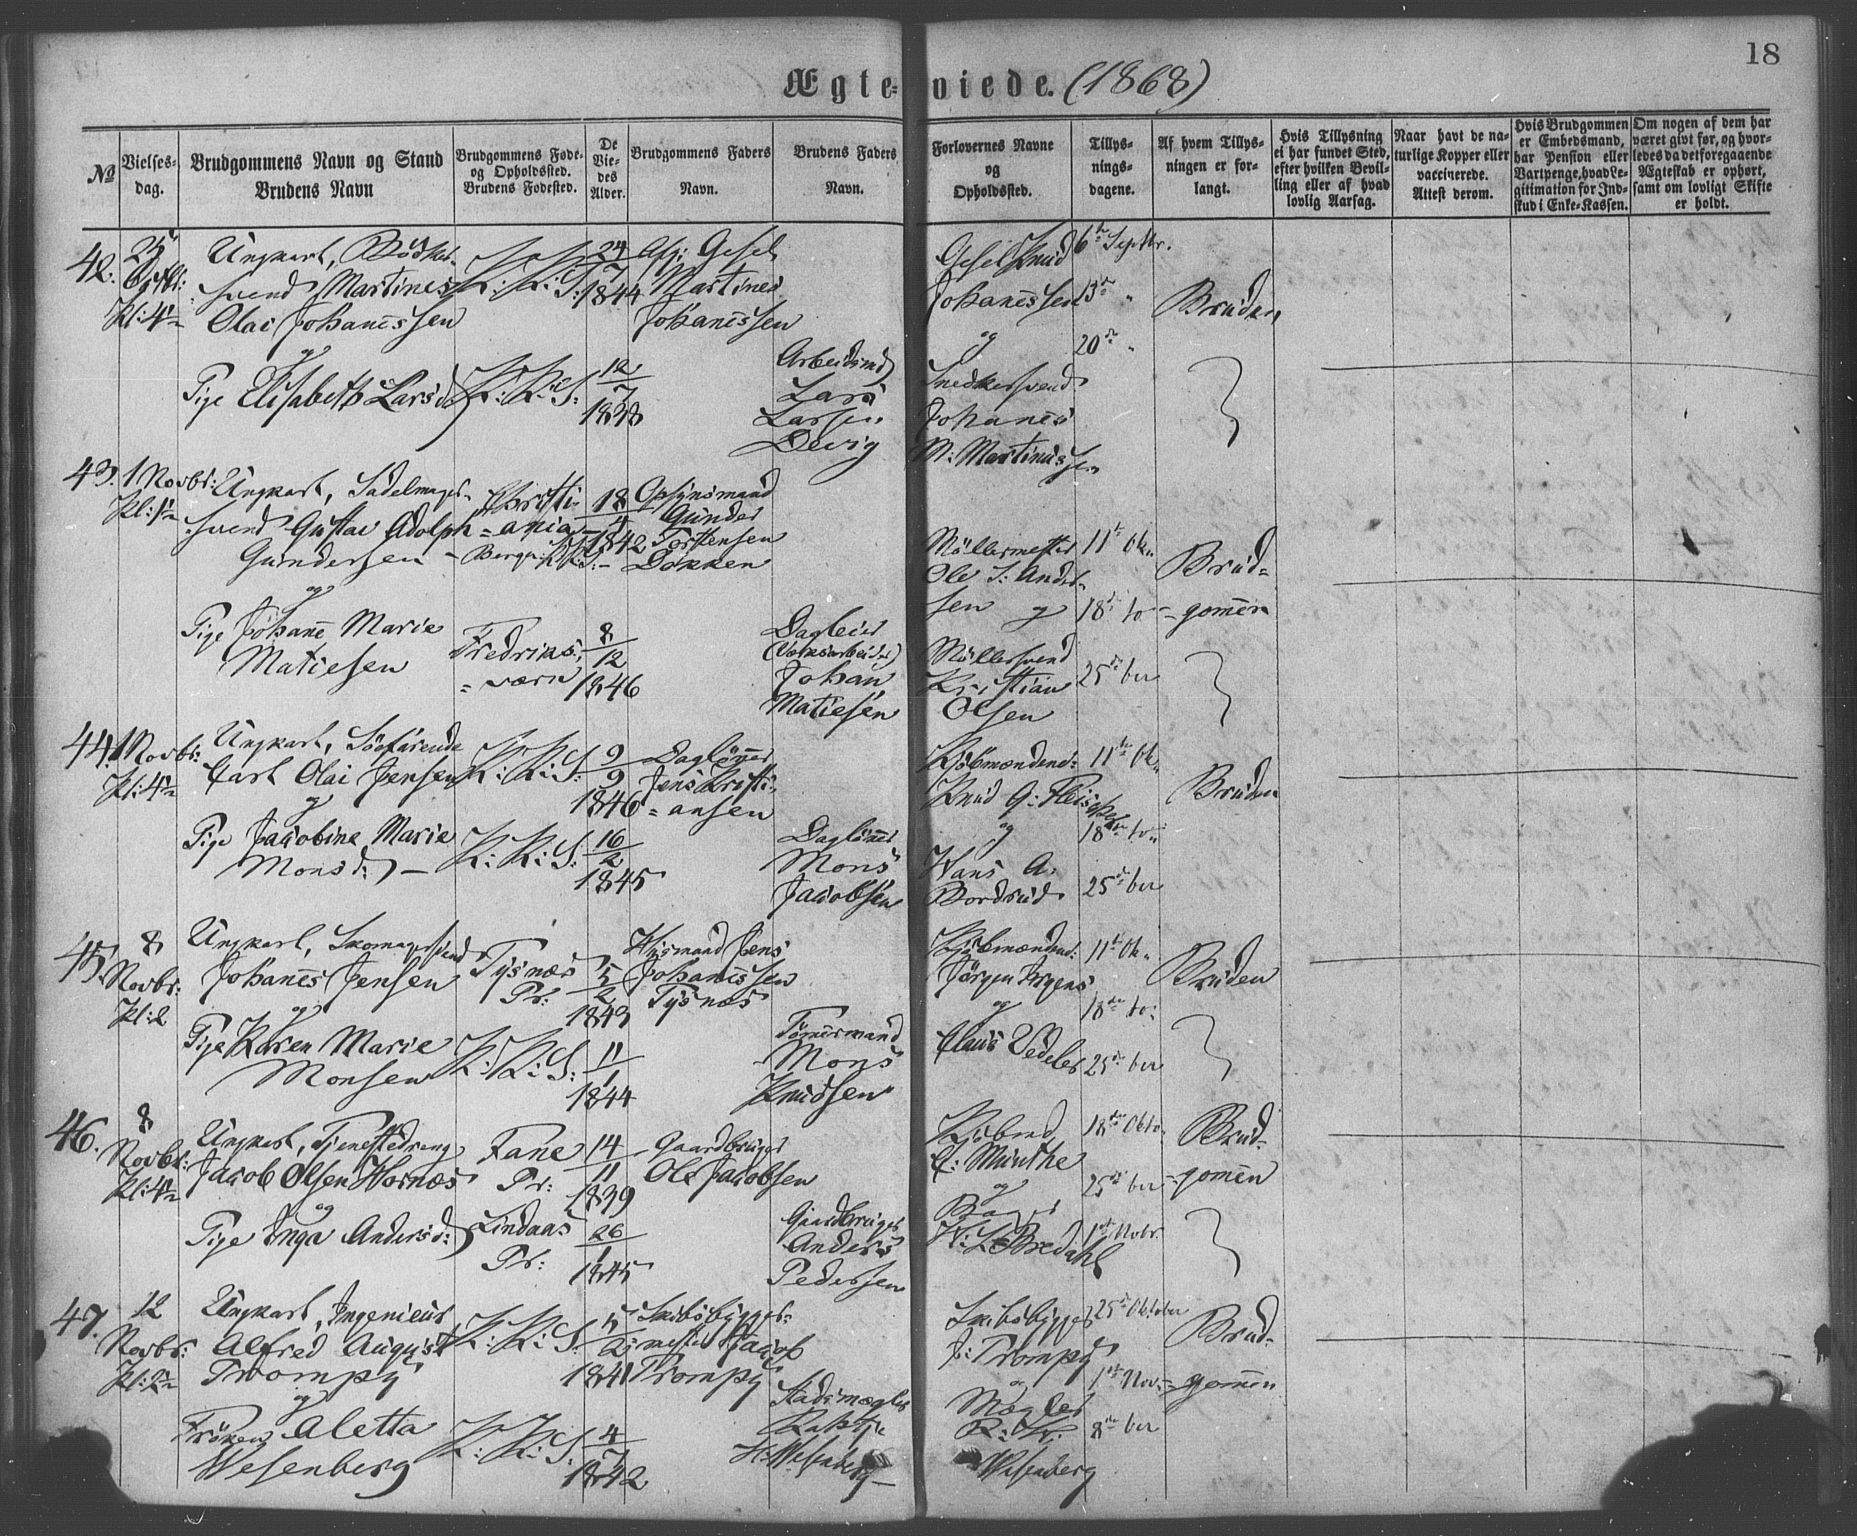 18
Ægte-viede. (1868)
No
Vielses-dag.
Brudgommens Navn og Stand
Brudens Navn
Brudgommens Føde-
og Opholdssted.
Brudens Fødested.
De
Vie-
des
Alder.
Brudgommens Faders
Navn.
Brudens Faders
Navn.
Forlovernes Navne
og
Opholdssted.
Tillys-
nings-
dagene.
Af hvem Tillys-
ningen er for-
langt.
Hvis Tillysning
ei har fundet Sted,
efter hvilken Bevil-
ling eller af hvad
lovlig Aarsag.
Naar havt de na-
turlige Kopper eller
vaccinerede.
Attest derom.
Hvis Brudgommen
er Embedsmand,
har Pension eller
Vartpenge, hvad Le-
gitimation for Ind-
skud i Enke-Kassen.
Om nogen af dem har
været givt før, og hvor-
ledes da det foregaaende
Ægteskab er ophørt,
samt om lovligt Skifte
er holdt.
42.
25
Kl: 4½
Ungkarl, Bödker-
svend Martines
Olai Johanessen
og
Pige Elisabeth Larsd:
K: K: S:
K: K: S:
24
7
1844
12
7
1838
Gesel
Martines
Johanessen
Arbeidsmd
Lars
Larsen
Devig
Gesel Knud
Johanessen
og
Snedkersvend
Johanes
M: Martinussen
6te Septbr.
13de "
20de "
Bruden
43.
1 Novbr:
Kl: 4½
Ungkarl, Sadelmager-
svend Gustav Adolph
Gundersen
og
Pige Johane Marie
Matiesen
Christi-
ania
Bergen K: K: S:
Fredriks-
værn
18
4
1842
8
12
1846
Opsynsmand
Gunder
Torstensen
Dokken
Dagleier
(Værksarbeider)
Johan
Matiesen
Möllermester
Ole S: Ander-
sen og
Möllersvend
Kristian
Olsen
11te Ok-
18de to-
25de ber
Brud-
gomen
44.
1 Novbr:
Kl: 4½
Ungkarl, Söefarende
Carl Olai Jensen
og
Pige Jacobine Marie
Monsd:
K: K: S:
K: K: S:
9
9
1846
16
2
1845
Daglöner
Jens Kristi-
ansen
Daglöner
Mons
Jacobsen
Kjöbmændene:
Knud G: Fleischer
og
Hans A.
Bordrud
11te Ok-
18de to-
25de ber
Bruden
45.
8
Novbr:
Kl: 2
Ungkarl, Skomagersvend
Johanes Jensen
og
Pige Karen Marie
Monsen
Tysnæs
Pr:
K: K: S:
5
2
1843
11
1
1844
Husmand Jens
Johanessen
Tysnæs
Tömermand
Mons
Knudsen
Kjöbmændene:
Jörgen Irgens
og
Claus Vedeler
11te Ok-
18de to-
25de ber
Bruden
46.
8
Novbr:
Kl: 4½
Ungkarl, Tjenestedreng
Jacob Olsen Hornæs
og
Pige Inga Andersd:
Fane
Pr:
Lindaas
Pr:
14
11
1839
26
1
1845
Gaardbruger
Ole Jacobsen
Gaardbruger
Anders
Pedersen
Kjöbmd
C: Munthe
og
Bager
Bredahl
18de Okto-
25de ber
1ste Novbr.
Brud-
gomen
47.
12
Novbr:
Kl: 2½
Ungkarl, Ingenieur
Alfred August
Trompy
og
Fröken Aletta
Wesenberg
K: K: S:
K: K: S:
5
2
1841
4
7
1842
Skibsbygger-
mester Jacob
Trompy
Stadsmægler
H: Wesenberg
Skibsbygger
J: Trompy
og
Mægler
R: Kr:
Wesenberg
25de Oktober
1ste Nov-
8de ber
Brud-
gomen